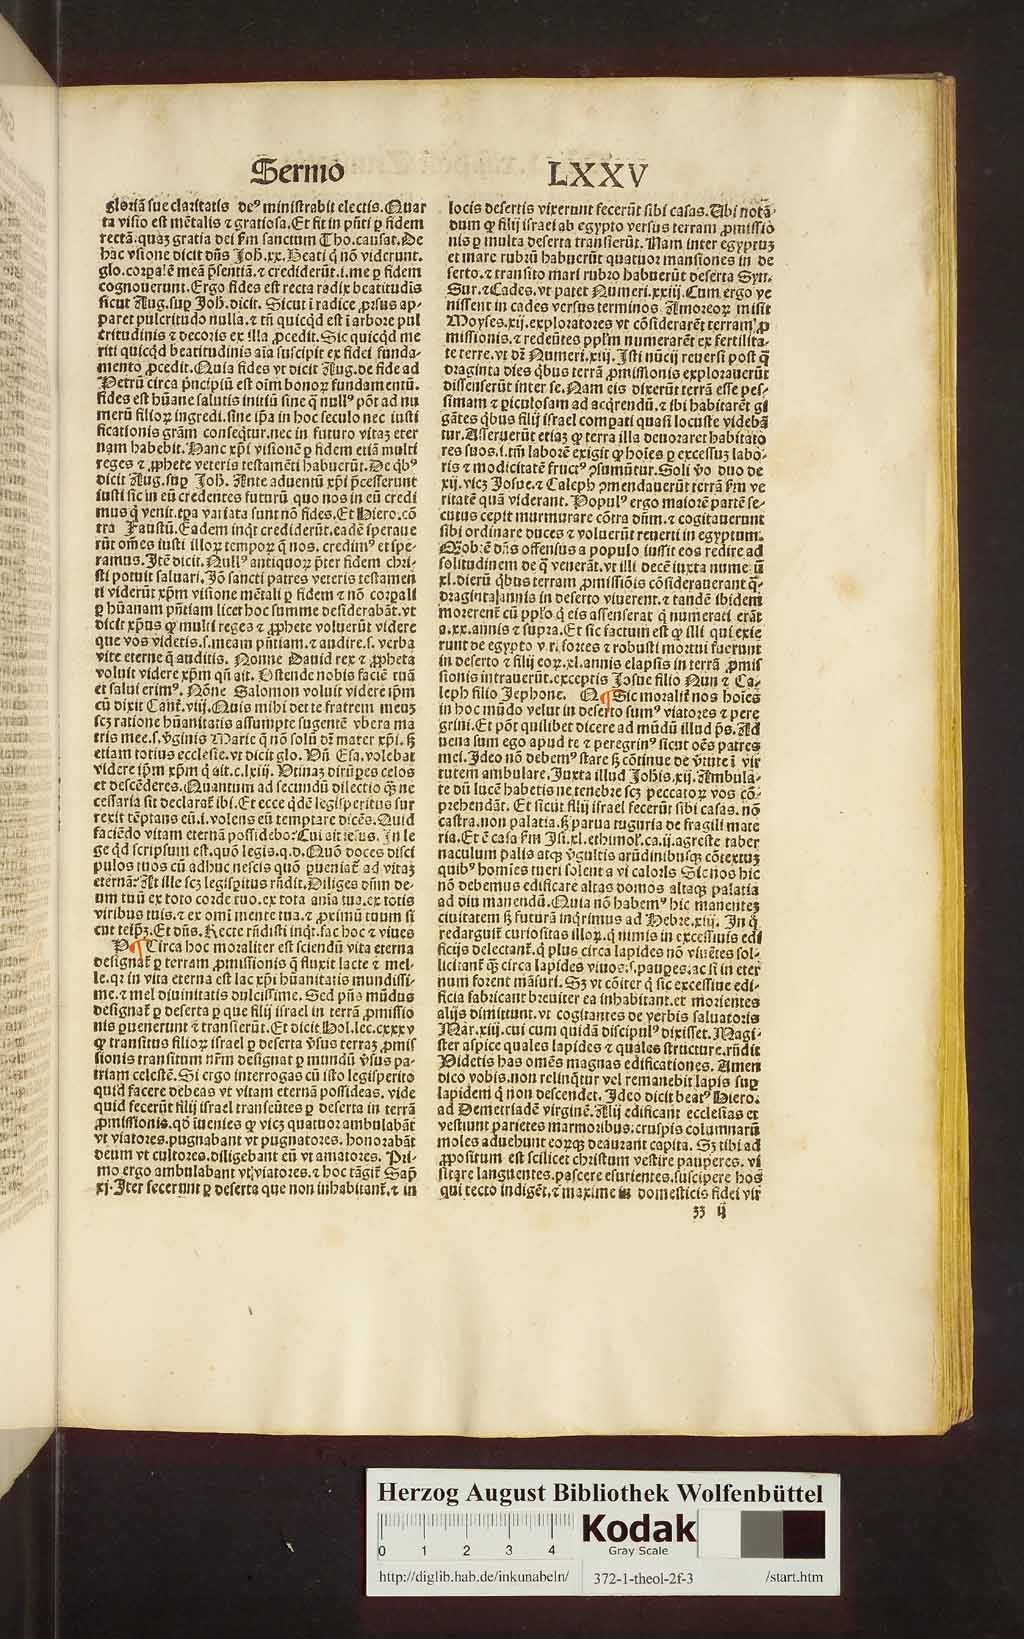 Sermo LXXV
gloriā sue claritatis deꝰ ministrabit electis. Quar
ta visio est mētalis ⁊ gratiosa. Et fit in pn̄ti ꝑ fidem
rectā. quaꝫ gratia dei scd̄m sanctum Tho. causat. De
hac visione dicit dn̄s Joh̄. xx. Beati q̄ nō viderunt.
glo. corꝑalē meā p̄sentiā. ⁊ crediderūt. i. me ꝑ fidem
cognouerunt. Ergo fides est recta radix beatitudis
sicut Aug. suꝑ Joh̄. dicit. Sicut ī radice ꝓrsus ap-
paret pulcritudo nulla. ⁊ tn̄ quicqd est ī arbore pul
critudinis ⁊ decoris ex illa ꝓcedit. Sic quicqd me
riti quicqd beatitudinis aīa suscipit ex fidei funda-
mento ꝓcedit. Quia fides vt dicit Aug. de fide ad
Petrū circa p̄ncipiū est oīm bonoꝝ fundamentū.
fides est hūane salutis initiū sine q̄ nullꝰ pōt ad nu
merū filioꝝ ingredi. sine ip̄a in hoc seculo nec iusti
ficationis grām conseqtur. nec in futuro vitaꝫ eter
nam habebit. Hanc xp̄i visionē ꝑ fidem etiā multi
reges ⁊ ꝓphete veteris testamēti habuerūt. De qbꝰ
dicit Aug. suꝑ Joh̄. Ante aduentū xp̄i p̄cesserunt
iusti sic in eū credentes futurū quo nos in eū credi
mus q̄ venit. tꝑa variata sunt nō fides. Et Hiero. cō
tra Faustū. Eadem inqt crediderūt. eadē speraue
rūt om̄es iusti illoꝝ tempoꝝ q̄ nos. credimꝰ et spe-
ramus. Itē dicit. Nullꝰ antiquoꝝ p̄ter fidem chri-
sti potuit saluari. Jō sancti patres veteris testamen
ti viderūt xp̄m visione mētali ꝑ fidem ⁊ nō corꝑali
ꝑ hūanam pn̄tiam licet hoc summe desiderabāt. vt
dicit xp̄us ꝙ multi reges ⁊ ꝓphete voluerūt videre
que vos videtis. s. meam pn̄tiam. ⁊ audire. s. verba
vite eterne q̄ auditis. Nonne Dauid rex ⁊ ꝓpheta
voluit videre xp̄m qn̄ ait. Ostende nobis faciē tuā
et salui erimꝰ. Nōne Salomon voluit videre ip̄m
cū dixit Cant̄. viij. Quis mihi det te fratrem meuꝫ
scꝫ ratione hūanitatis assumpte sugentē vbera ma
tris mee. s. v̄ginis Marie q̄ nō solū dr̄ mater xp̄i. sꝫ
etiam totius ecclesie. vt dicit glo. Vn̄ Esa. volebat
videre ip̄m xp̄m q̄ ait. c. lxiij. Vtinaꝫ dirūpes celos
et descēderes. Quantum ad secundū dilectio qꝫ ne
cessaria sit declarat̄ ibi. Et ecce qdē legisperitus sur
rexit tēptans eū. i. volens eū temptare dicēs. Quid
faciēdo vitam eternā possidebo? Cui ait iesus. In le
ge qd scripsum est. quō legis. q. d. Quō doces disci
pulos tuos cū adhuc nescis quō ꝑueniat̄ ad vitaꝫ
eternā? At ille scꝫ legisꝑitus rn̄dit. Diliges dn̄m de-
um tuū ex toto corde tuo. ex tota anīa tua. ex totis
viribus tuis. ⁊ ex omī mente tua. ⁊ ꝓximū tuum si
cut teip̄ꝫ. Et dn̄s. Recte rn̄disti inqt. fac hoc ⁊ viues
P ¶ Circa hoc moraliter est sciendū vita eterna
designat̄ ꝑ terram ꝓmissionis q̄ fluxit lacte ⁊ mel-
le. qꝛ in vita eterna est lac xp̄i hūanitatis mundissi-
me. ⁊ mel diuinitatis dulcissime. Sed pn̄s mūdus
designat̄ ꝑ deserta ꝑ que filij israel in terrā ꝓmissio
nis ꝑuenerunt ⁊ transierūt. Et dicit Hol. lec. cxxxv
ꝙ transitus filioꝝ israel ꝑ deserta v̄sus terraꝫ ꝓmis
sionis transitum nr̄m designat ꝑ mundū v̄sus pa-
triam celestē. Si ergo interrogas cū isto legisperito
quid facere debeas vt vitam eternā possideas. vide
quid fecerūt filij israel transeūtes ꝑ deserta in terrā
ꝓmissionis. qō iuenies ꝙ vicꝫ quatuor ambulabāt
vt viatores. pugnabant vt pugnatores. honorabāt
deum vt cultores. diligebant eū vt amatores. Pri-
mo ergo ambulabant vt viatores. ⁊ hoc tāgit̄ Sap̄
xj. Iter fecerunt ꝑ deserta que non inhabitant̄. ⁊ in
locis desertis vixerunt fecerūt sibi casas. Ubi notā-
dum ꝙ filij israel ab egypto versus terram ꝓmissio
nis ꝑ multa deserta transierūt. Nam inter egyptuꝫ
et mare rubrū habuerūt quatuor mansiones in de
serto. ⁊ transito mari rubro habuerūt deserta Syn.
Sur. ⁊ Cades. vt patet Numeri. xxiij. Cum ergo ve
nissent in cades versus terminos Amoreoꝝ misit
Moyses. xij. exploratores vt cōsiderarēt terram ꝓ
missionis. ⁊ redeūtes pplm̄ numerarēt ex fertilita-
te terre. vt dr̄ Numeri. xiij. Isti nūcij reuersi post q̄
draginta dies qbus terrā ꝓmissionis explorauerūt
dissenserūt inter se. Nam eis dixerūt terrā esse pes-
simam ⁊ ꝑiculosam ad acqrendū. ⁊ ibi habitarēt gi
gātes qbus filij israel compati quasi locuste videbā
tur. Asseruerūt etiaꝫ ꝙ terra illa deuoraret habitato
res suos. i. tm̄ laborē exigit ꝙ hoīes ꝑ excessuꝫ labo-
ris ⁊ modicitatē fructꝰ ꝯsumūtur. Soli v̄o duo de
xij. vicꝫ Josue. ⁊ Caleph ꝯmendauerūt terrā scd̄m ve
ritatē quā viderant. Populꝰ ergo maiorē partē se-
cutus cepit murmurare cōtra dn̄m. ⁊ cogitauerunt
sibi ordinare duces ⁊ voluerūt reuerti in egyptum.
Qob: ē dn̄s offensus a populo iussit eos redire ad
solitudinem de q̄ venerāt. vt illi decē iuxta nume ū
xl. dierū qbus terram ꝓmissiōis cōsiderauerant q̄-
draginta annis in deserto viuerent. ⁊ tandē ibidem
morerent̄ cū pplo q̄ eis assenserat q̄ numerati erāt
a. xx. annis ⁊ supra. Et sic factum est ꝙ illi qui exie
runt de egypto viri fortes ⁊ robusti mortui fuerunt
in deserto ⁊ filij eoꝝ. xl. annis elapsis in terrā ꝓmis
sionis intrauerūt. exceptis Josue filio Nun ⁊ Ca-
leph filio Jephone. Q ¶ Sic moralit̄ nos hoīes
in hoc mūdo velut in deserto sumꝰ viatores ⁊ pere
grini. Et pōt quilibet dicere ad mūdū illud ps̄. Ad
uena sum ego apud te ⁊ peregrinꝰ sicut oēs patres
mei. Ideo nō debemꝰ stare sꝫ cōtinue de v̄tute ī vir
tutem ambulare. Juxta illud Joh̄is. xij. Ambula-
te dū lucē habetis ne tenebre scꝫ peccatoꝝ vos cō-
prehendāt. Et sicut filij israel fecerūt sibi casas. nō
castra. non palatia. sꝫ parua tuguria de fragili mate
ria. Et ē casa scd̄m Isi. xl. ethimol. ca. ij. agreste taber
naculum palis atqꝫ v̄gultis arūdinibusqꝫ cōtextuꝫ
quibꝰ homies tueri solent a vi caloris Sic nos hic
nō debemus edificare altas domos altaqꝫ palatia
ad diu manendū. Quia nō habemꝰ hic manenteꝫ
ciuitatem sꝫ futurā inqrimus ad Hebre. xiij. In q̄
redarguit̄ curiositas illoꝝ. q̄ nimis in excessiuis edi
ficijs delectant̄. q̄ plus circa lapides nō viuētes sol-
licitant̄ qꝫ circa lapides viuos. s. pauꝑes. ac si in eter
num forent māsuri. Sꝫ vt cōiter q̄ sic excessiue edi-
ficia fabricant breuiter ea inhabitant. et morientes
alijs dimittunt. vt cogitantes de verbis saluatoris
Mar. xiij. cui cum quidā discipulꝰ dixisset. Magi-
ster aspice quales lapides ⁊ quales structure. rn̄dit
Videtis has omēs magnas edificationes. Amen
dico vobis. non relinqtur vel remanebit lapis suꝑ
lapidem q̄ non descendet. Ideo dicit beatꝰ Hiero.
ad Demetriadē virginē. Alij edificant ecclesias et
vestiunt parietes marmoribus. cruspis columnarū
moles aduehunt eoꝝqꝫ deaurant capita. Sꝫ tibi ad
ꝓpositum est scilicet christum vestire pauperes. vi
sitare languentes. pascere esurientes. suscipere hos
qui tecto indigēt. ⁊ maxime in domesticis fidei vir
zz ij
Herzog August Bibliothek Wolfenbüttel
0 1 2 3 4
Kodak
Gray Scale
http://diglib.hab.de/inkunabeln/ 372-1-theol-2f-3 /start.htm